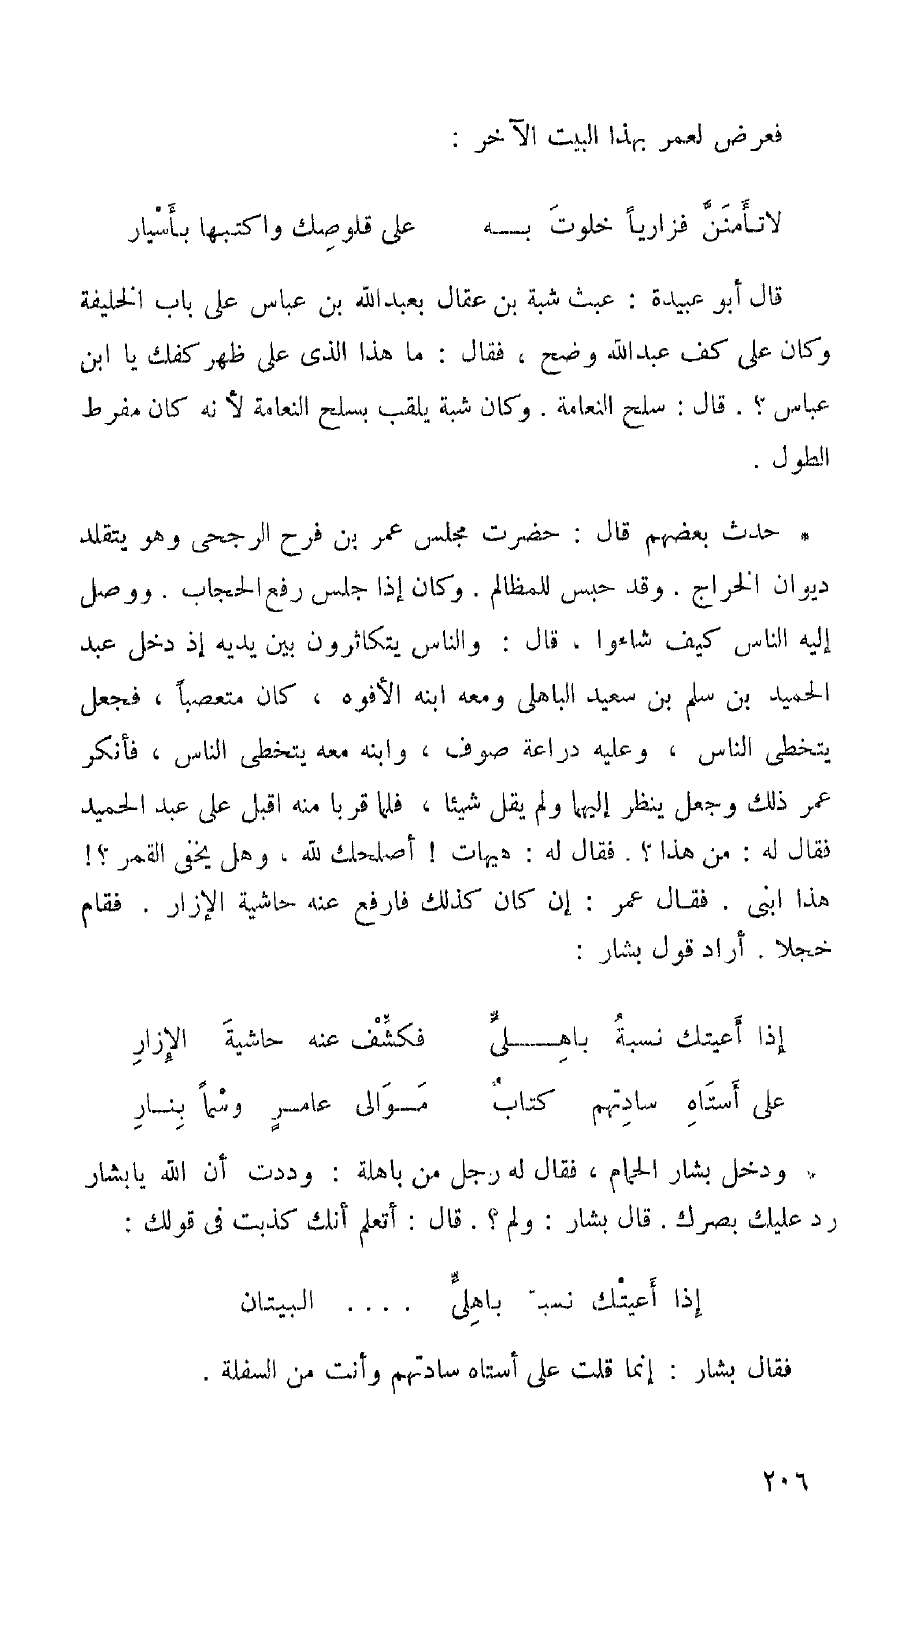 فعرض لعمر بهذا البيت الآخر :
لاتأمَنَنَّ فزارياً خلوتَ بــه على قلوصِك واكتبها بأَسْيار
قال أبو عبيدة : عبث شبة بن عقال بعبدالله بن عباس على باب الخليفة
وكان على كف عبدالله وضح ، فقال : ما هذا الذى على ظهر كفك يا ابن
عباس ؟ . قال : سلح النعامة . وكان شبة يلقب بسلح النعامة لأنه كان مفرط
الطول .
* حدث بعضهم قال : حضرت مجلس عمر بن فرح الرجحى وهو يتقلد
ديوان الخراج . وقد حبس للمظالم . وكان إذا جلس رفع الحجاب . ووصل
إليه الناس كيف شاءوا ، قال : والناس يتكاثرون بين يديه إذ دخل عبد
الحميد بن سلم بن سعيد الباهلى ومعه ابنه الأفوه ، كان متعصباً ، فجعل
يتخطى الناس ، وعليه دراعة صوف ، وابنه معه يتخطى الناس ، فأنكر
عمر ذلك وجعل ينظر إليها ولم يقل شيئا ، فلما قربا منه اقبل على عبد الحميد
فقال له : من هذا ؟ . فقال له : هيهات ! أصلحك لله ، وهل يخفى القمر ؟!
هذا ابنى . فقال عمر : إن كان كذلك فارفع عنه حاشية الإزار . فقام
خجلا . أراد قول بشار :
إذا أَعيتك نسبةُ باهِــلىٍّ فكشِّفْ عنه حاشيةَ الإِزارِ
على أَستَاهِ سادِتهم كتابٌ مَــوَالى عامــرٍ وسْماً بِنــارِ
* ودخل بشار الحمام ، فقال له رجل من باهلة : وددت أن الله يابشار
رد عليك بصرك . قال بشار : ولم ؟ . قال : أتعلم أنك كذبت فى قولك :
إذا أَعيتْك نسبة باهِلىٍّ .... البيتان
فقال بشار : إنما قلت على أستاه سادتهم وأنت من السفلة .
٢٠٦